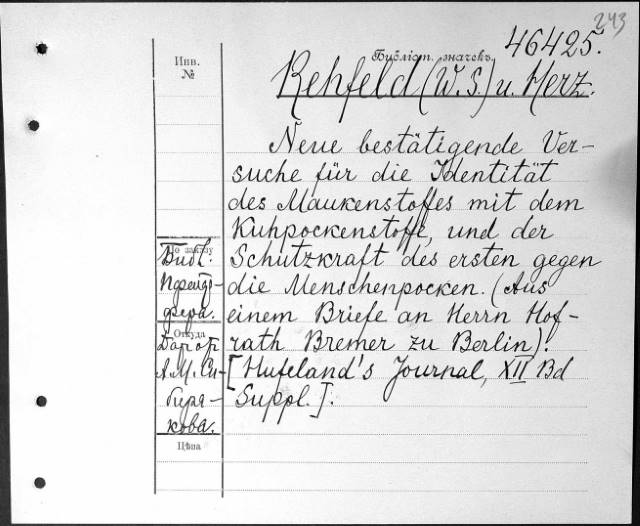 243
46425.
Инв.
№
Библіот. значекъ
Rehfeld (W. S.) u. Herz.
Neue bestätigende Ver-
suche für die Identität
des Maukenstoffes mit dem
Kuhpockenstoffe, und der
Schutzkraft des ersten gegen
die Menschenpocken. (Aus
einem Briefe an Herrn Hof-
rath Bremer zu Berlin).
[Hufeland's Journal, XII Bd
Suppl.].
По заказу
Библ.
Пфейф-
фера.
Откуда
Дар от
А. М. Си-
биря-
кова.
Цѣна